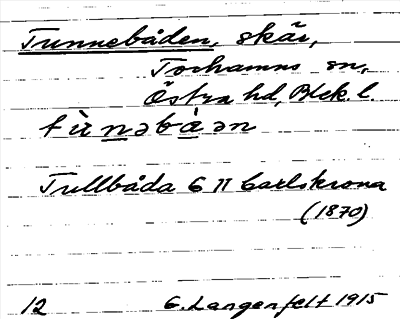 Tunnebåden, skär,
Torhamns sn,
Östra hd, Blek. l.
tùnəbàən
Tullbåda G π Carlskrona
(1870)
12 G. Langenfelt 1915